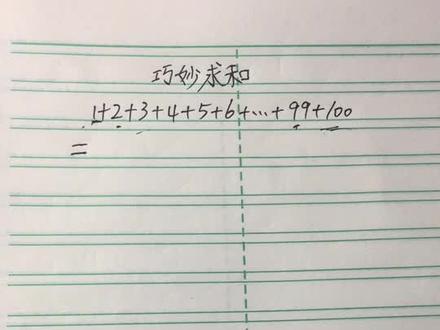 巧妙求和
1+2+3+4+5+6+…+99+100
=